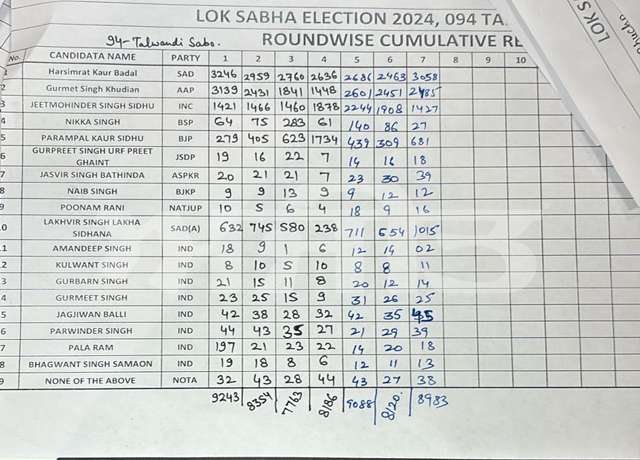 LOK SABHA ELECTION 2024, 094 TA
94- Talwandi Sabo. ROUNDWISE CUMULATIVE RE
LOK S
No. CANDIDATA NAME PARTY 1 2 3 4 5 6 7 8 9 10
1 Harsimrat Kaur Badal SAD 3246 2959 2760 2636 2686 2463 3058
2 Gurmet Singh Khudian AAP 3139 2431 1841 1448 2601 2451 2485
3 JEETMOHINDER SINGH SIDHU INC 1421 1466 1460 1878 2249 1908 1427
4 NIKKA SINGH BSP 64 75 283 61 140 86 27
5 PARAMPAL KAUR SIDHU BJP 279 405 623 1734 439 309 681
6 GURPREET SINGH URF PREET GHAINT JSDP 19 16 22 7 14 16 18
7 JASVIR SINGH BATHINDA ASPKR 20 21 21 7 23 30 39
8 NAIB SINGH BJKP 9 9 13 9 9 12 12
9 POONAM RANI NATJUP 10 5 6 4 18 9 16
0 LAKHVIR SINGH LAKHA SIDHANA SAD(A) 632 745 580 238 711 654 1015
1 AMANDEEP SINGH IND 18 9 1 6 12 14 02
2 KULWANT SINGH IND 8 10 5 10 8 8 11
3 GURBARN SINGH IND 21 15 11 8 20 12 14
4 GURMEET SINGH IND 23 25 15 9 31 26 25
5 JAGJIWAN BALLI IND 42 38 28 32 42 35 45
6 PARWINDER SINGH IND 44 43 35 27 21 29 39
7 PALA RAM IND 197 21 23 22 14 20 18
8 BHAGWANT SINGH SAMAON IND 19 18 8 6 12 11 13
9 NONE OF THE ABOVE NOTA 32 43 28 44 43 27 38
9243 8354 7763 8186 9088 8120 8983